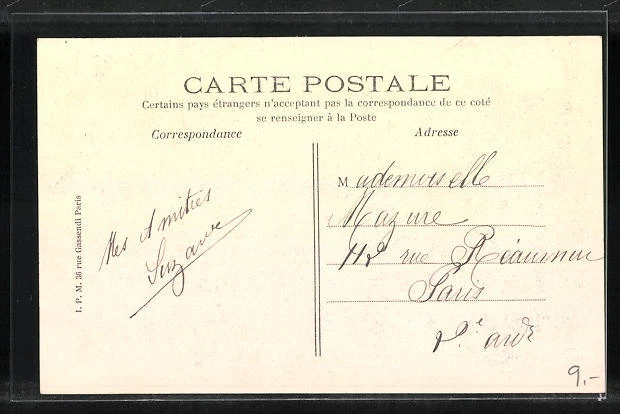 CARTE POSTALE
Certains pays étrangers n'acceptent pas la correspondance de ce coté
se renseigner à la Poste
Correspondance
Adresse
Mes Amitiés
Suzanne
Mademoiselle
Mazure
rue Réaumur
Paris
2e
I. P. M. 36 rue Gassendi Paris
9.-